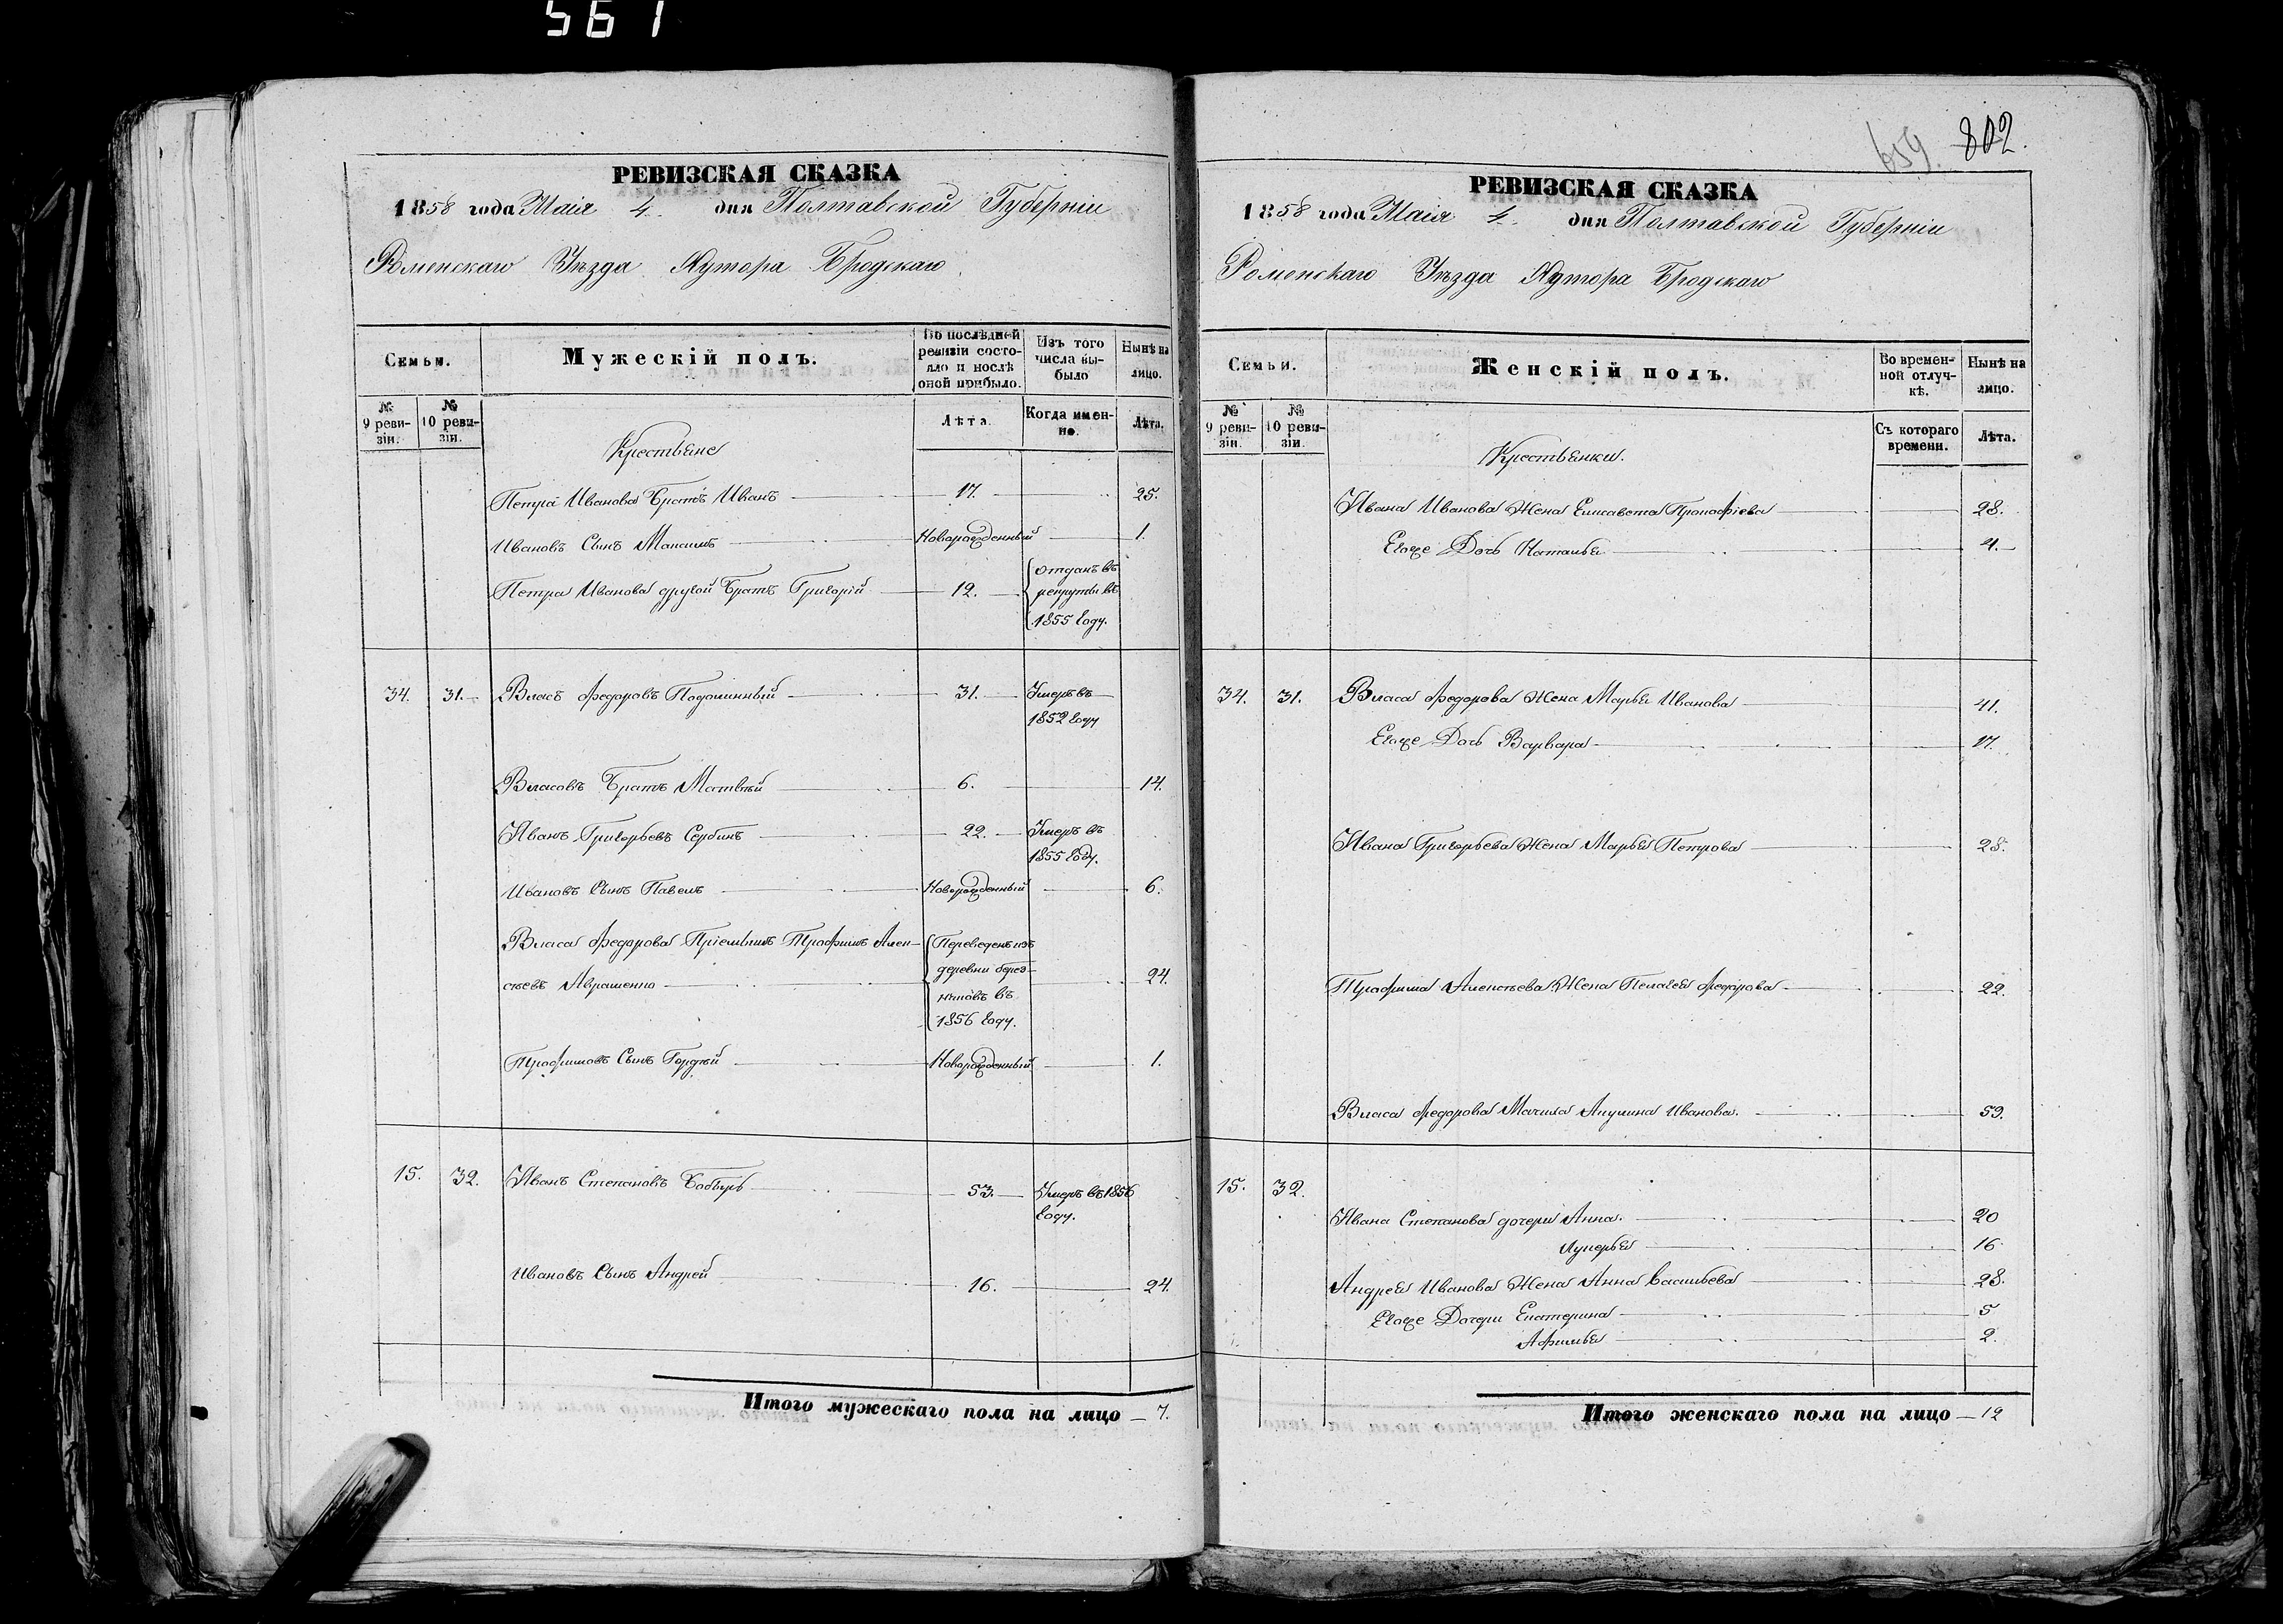 561
РЕВИЗСКАЯ СКАЗКА
1858 года Маія 4. дня Полтавской Губерніи
Роменскаго Уѣзда Хутора Бродскаго
Семьи.
Мужескій полъ.
Во послѣдней ревизіи состояло и послѣ оной прибыло.
Изъ того числа выбыло
Нынѣ на лицо.
№ 9 ревизіи.
№ 10 ревизіи.
Лѣта.
Когда именно.
Лѣта.
Крестьяне
Петра Иванова Братъ Иванъ 17. 25.
Ивановъ Сынъ Максимъ Новорожденный 1.
Петра Иванова другой Братъ Григорій 12. отданъ въ
рекруты въ
1855 году.
34. 31. Власъ Федоровъ 31. Умеръ въ
1852 году
Власовъ Братъ Матвѣй 6. 14.
Иванъ Григорьевъ Сербинъ 22. Умеръ въ
1855 году.
Ивановъ Сынъ Павелъ Новорожденный 6.
Власа Федорова Пріемышъ Трофимъ Алек- Переведенъ изъ
сѣевъ Авраменко деревни 24.
въ
1856 году.
Трофимовъ Сынъ Гордѣй Новорожденный 1.
15. 32. Иванъ Степановъ Бобырь 53. Умеръ въ 1856
году.
Ивановъ Сынъ Андрей 16. 24.
Итого мужескаго пола на лицо 7.
659. 802.
РЕВИЗСКАЯ СКАЗКА
1858 года Маія 4. дня Полтавской Губерніи
Роменскаго Уѣзда Хутора Бродскаго
Семьи.
Женскій полъ.
Во временной отлучкѣ.
Нынѣ на лицо.
№ 9 ревизіи.
№ 10 ревизіи.
Съ котораго времени.
Лѣта.
Крестьянки.
Ивана Иванова Жена Елисавета Прокофіева 28.
Егоже Дочь Наталья 4.
34. 31. Власа Федорова Жена Марья Иванова 41.
Егоже Дочь Варвара 17.
Ивана Григорьева Жена Марья Петрова 28.
Трофима Алексѣева Жена Пелагея Федорова 22.
Власа Федорова Мачиха Акулина Иванова. 59.
15. 32.
Ивана Степанова дочери Анна. 20
Лукерья 16
Андрея Иванова Жена Анна Васильева 28.
Егоже Дочери Екатерина 5
Афимья 2.
Итого женскаго пола на лицо 12